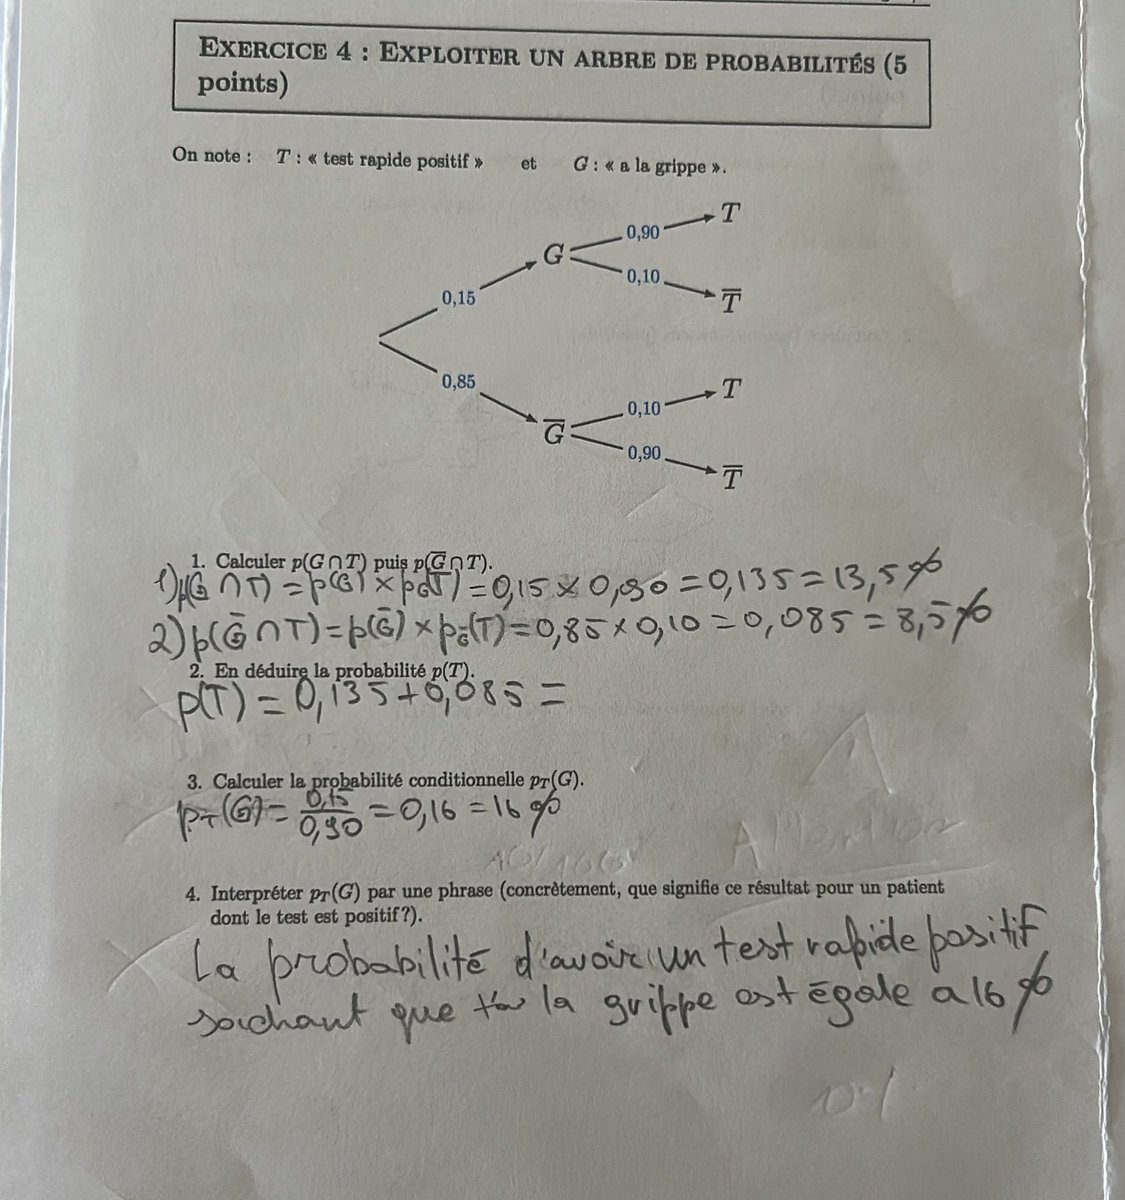 EXERCICE 4 : EXPLOITER UN ARBRE DE PROBABILITÉS (5
points)
On note : T : « test rapide positif » et G : « a la grippe ».
T
0,90
G
0,10
T̅
0,15
0,85
T
0,10
G̅
0,90
T̅
1. Calculer p(G∩T) puis p(G̅∩T).
1) p(G ∩ T) = p(G) × p_G(T) = 0,15 × 0,90 = 0,135 = 13,5 %
2) p(G̅ ∩ T) = p(G̅) × p_G̅(T) = 0,85 × 0,10 = 0,085 = 8,5 %
2. En déduire la probabilité p(T).
p(T) = 0,135 + 0,085 =
3. Calculer la probabilité conditionnelle p_T(G).
p_T(G) = 0,15/0,90 = 0,16 = 16 %
4. Interpréter p_T(G) par une phrase (concrètement, que signifie ce résultat pour un patient
dont le test est positif ?).
La probabilité d'avoir un test rapide positif
sachant que la grippe est égale a 16 %